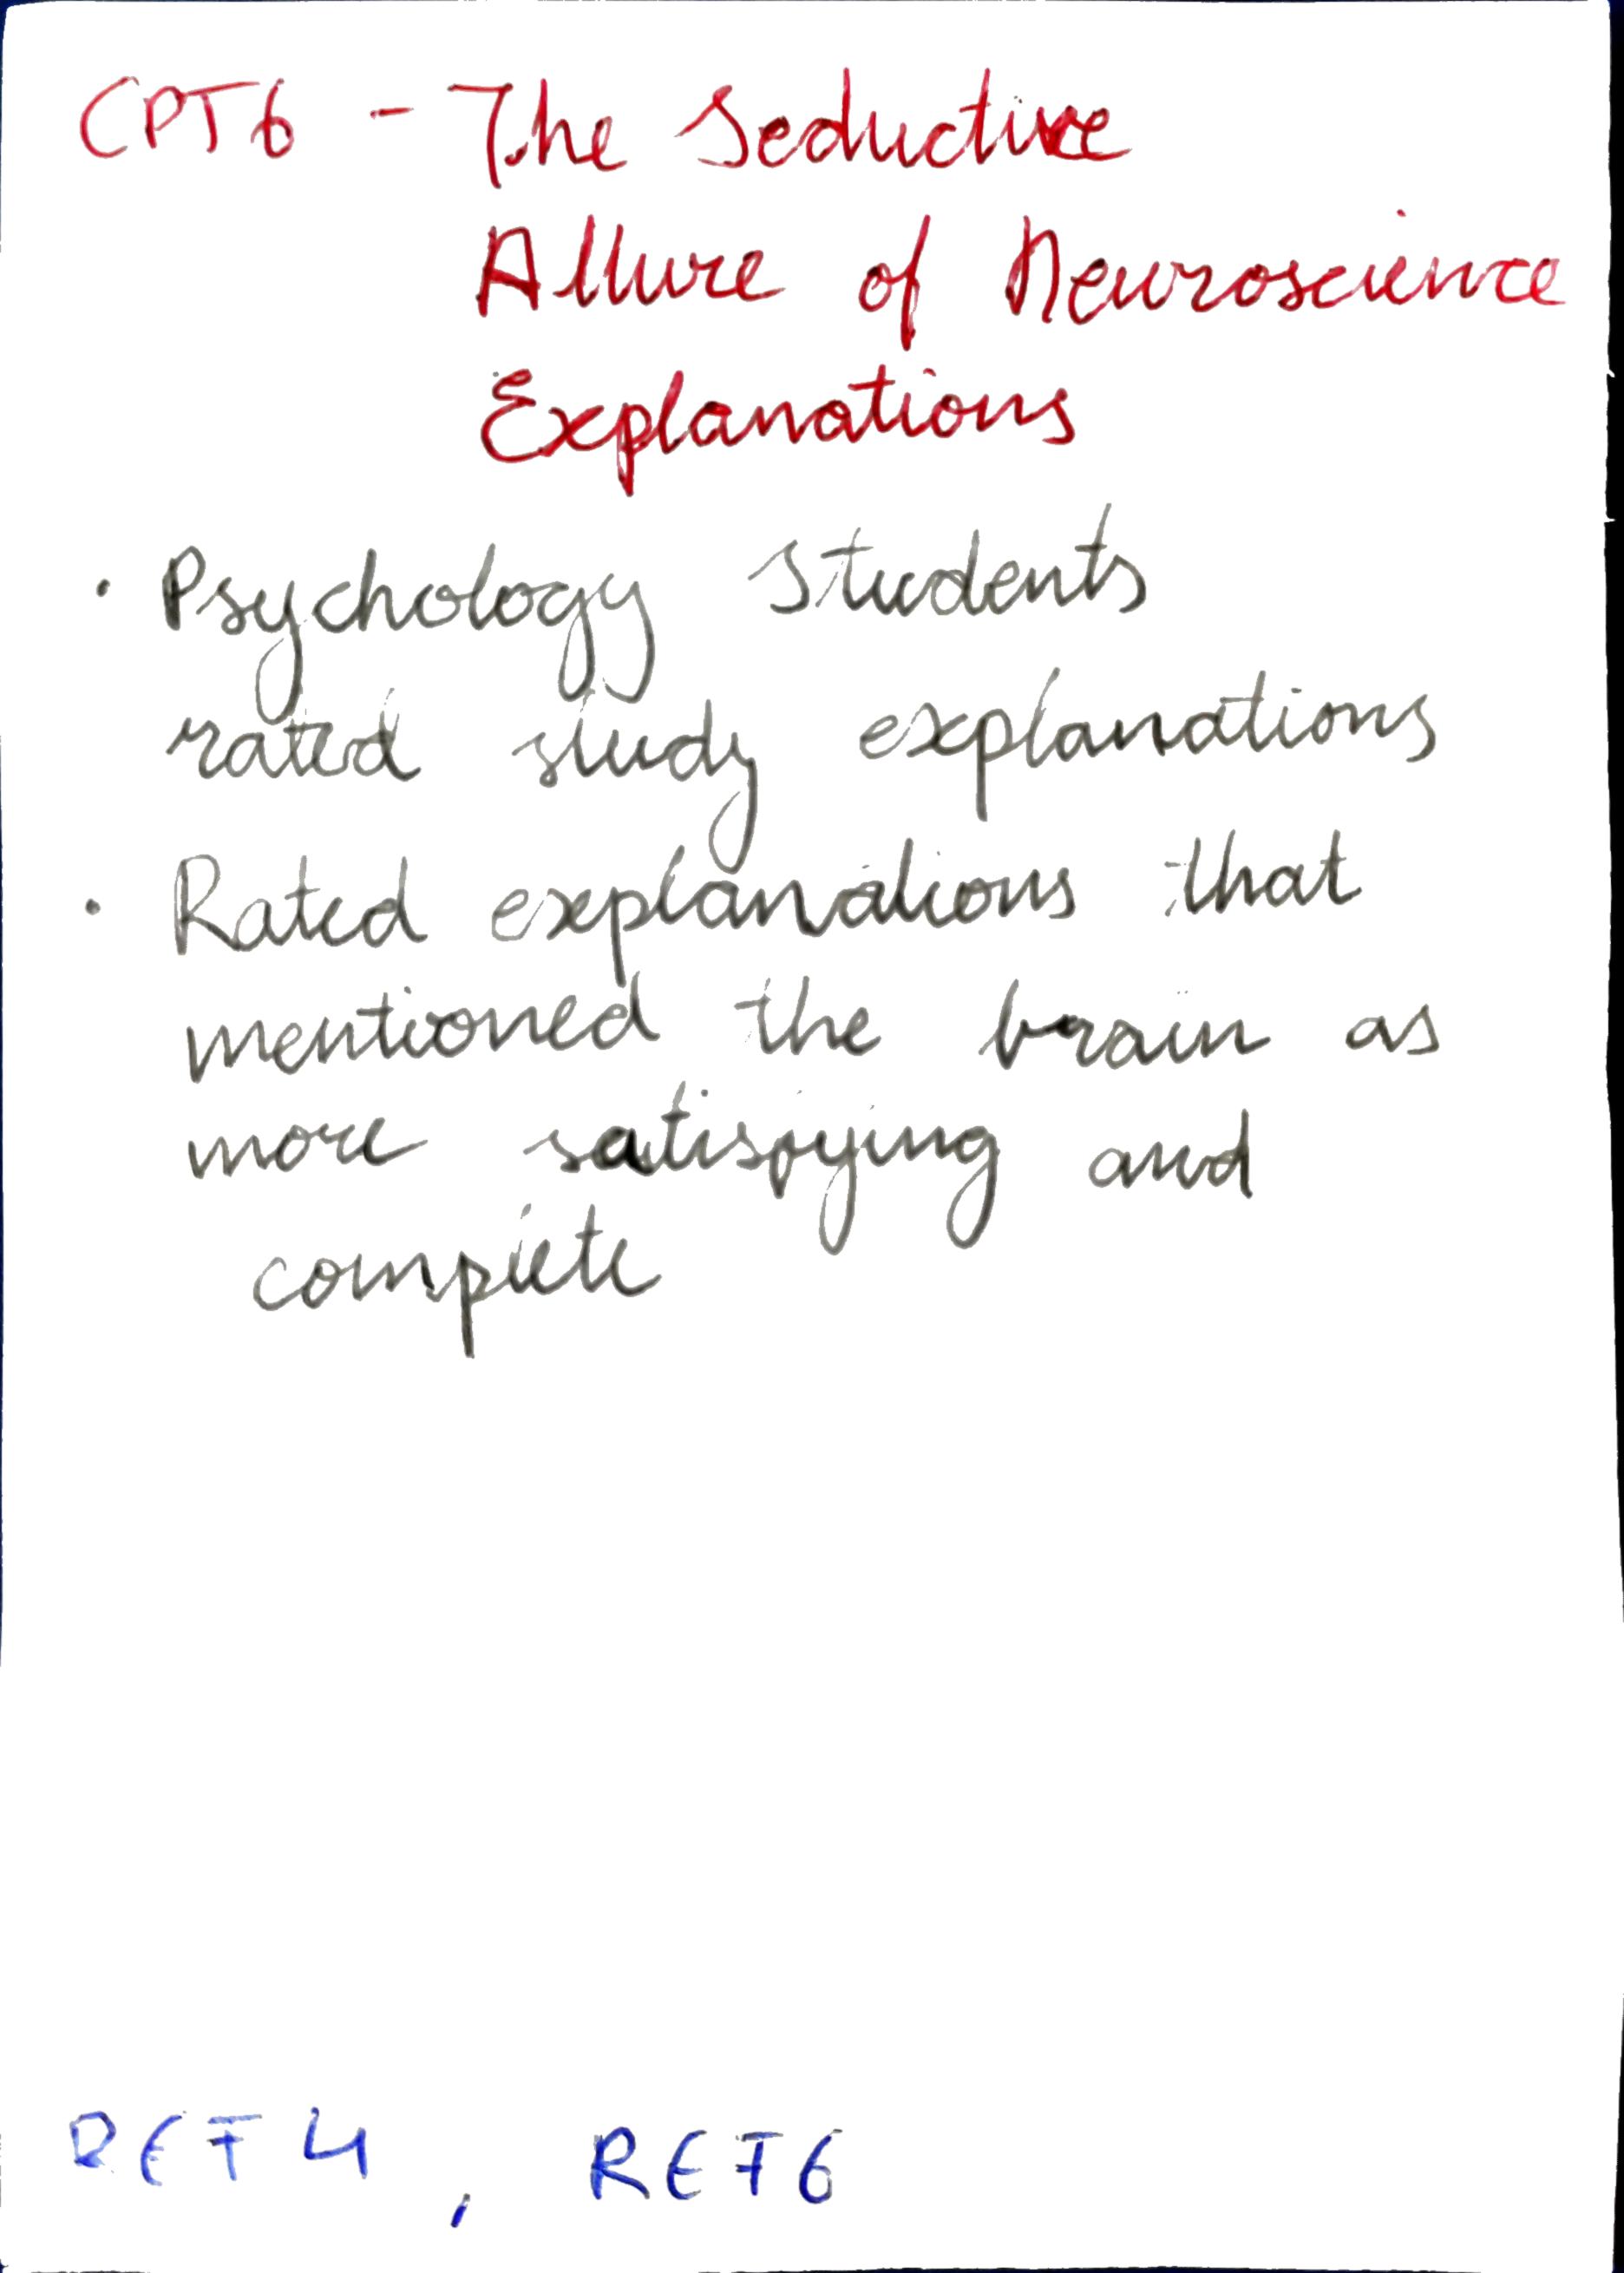 CPT6 - The Seductive
Allure of Neuroscience
Explanations
• Psychology Students
rated study explanations
• Rated explanations that
mentioned the brain as
more satisfying and
complete
REF4, REF6